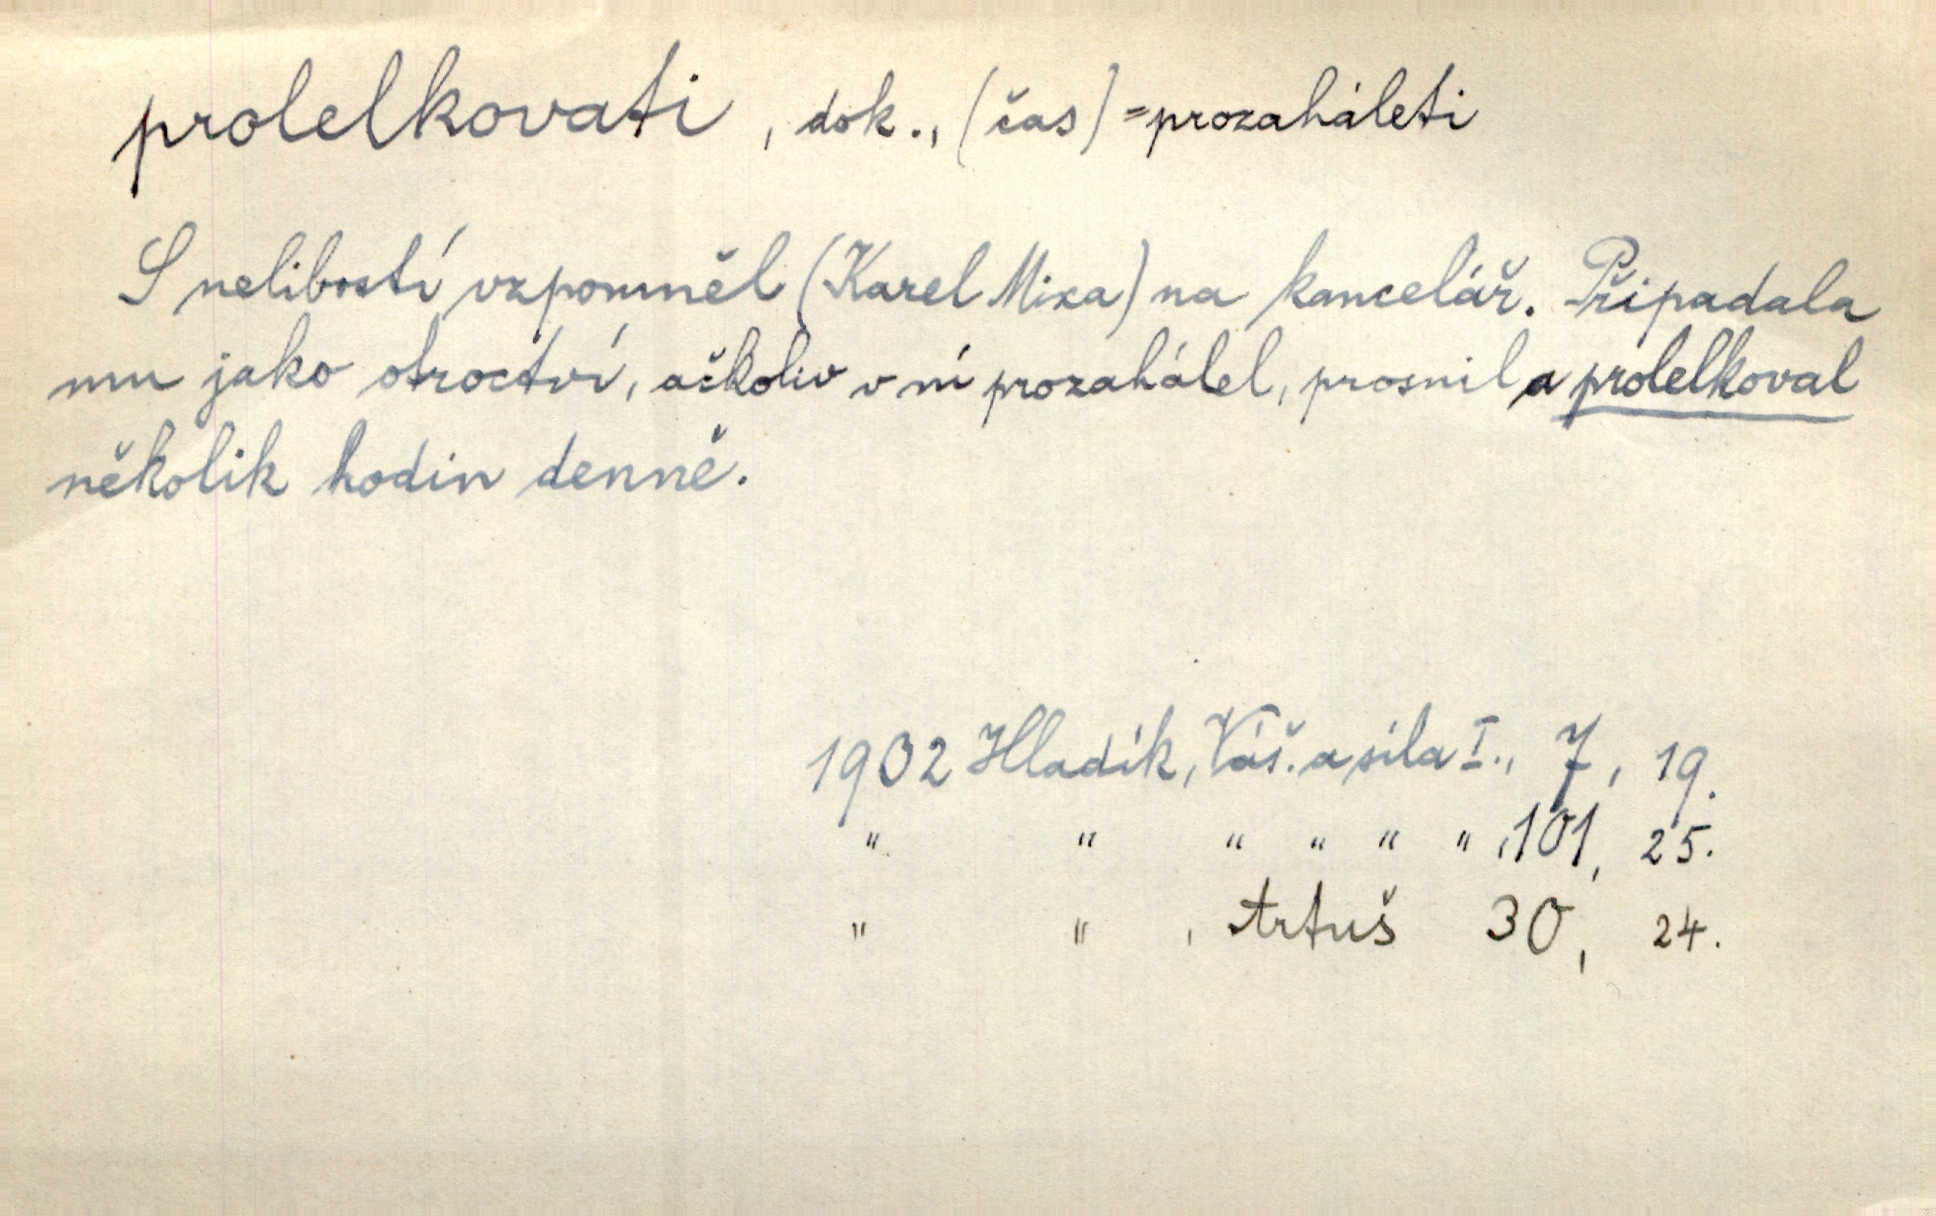 prolelkovati, dok., (čas) = prozaháleti
S nelibostí vzpomněl (Karel Mixa) na kancelář. Připadala
mu jako otroctví, ačkoliv v ní prozahálel, prosnil a prolelkoval
několik hodin denně.
1902 Hladík, Váš. a síla I., 7, 19.
" " " " " " , 101, 25.
" " , Artuš 30, 24.